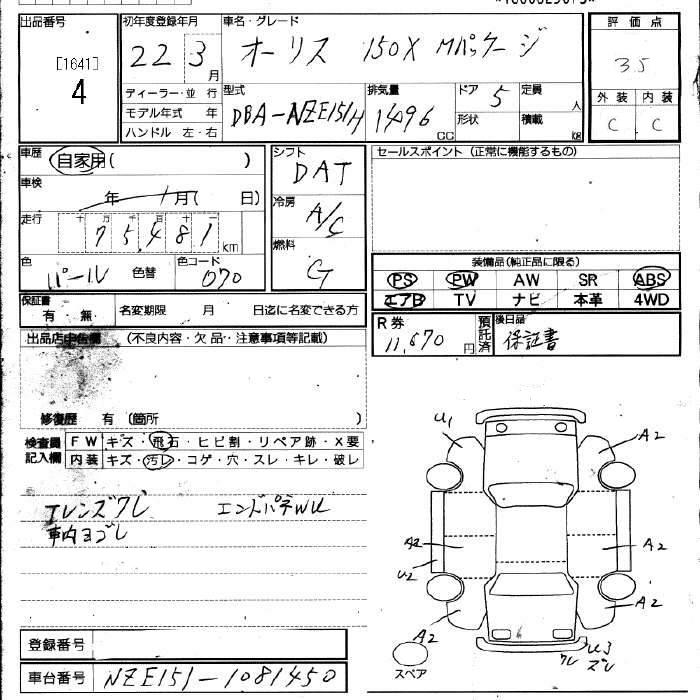 出品番号
[1641]
4
初年度登録年月
22 3 月
車名・グレード
オーリス 150X Mパッケージ
評価点
35
外装 内装
C C
ディーラー・並行
モデル年式 年
ハンドル 左・右
型式
DBA-NZE151H
排気量
1496 CC
ドア 5
形状
定員 人
積載 kg
車歴
自家用( )
車検
年 月( 日)
走行
十 万 千 百 十 一
75,481 km
色
パール
色替
色コード
070
シフト
DAT
冷房
A/C
燃料
G
セールスポイント (正常に機能するもの)
装備品(純正品に限る)
PS PW AW SR ABS
エアB TV ナビ 本革 4WD
保証書
有 無
名変期限 月 日迄に名変できる方
R券
11,670 円
預託済
後日品
保証書
出品店申告欄 (不良内容・欠品・注意事項等記載)
修復歴 有 (箇所 )
検査員記入欄
FW キズ・飛石・ヒビ割・リペア跡・X要
内装 キズ・汚レ・コゲ・穴・スレ・キレ・破レ
エンドパネWU
車内ヨゴレ
U1
A2
A2
A2
U2
A2
A2
U3
スペア
登録番号
車台番号 NZE151-1081450